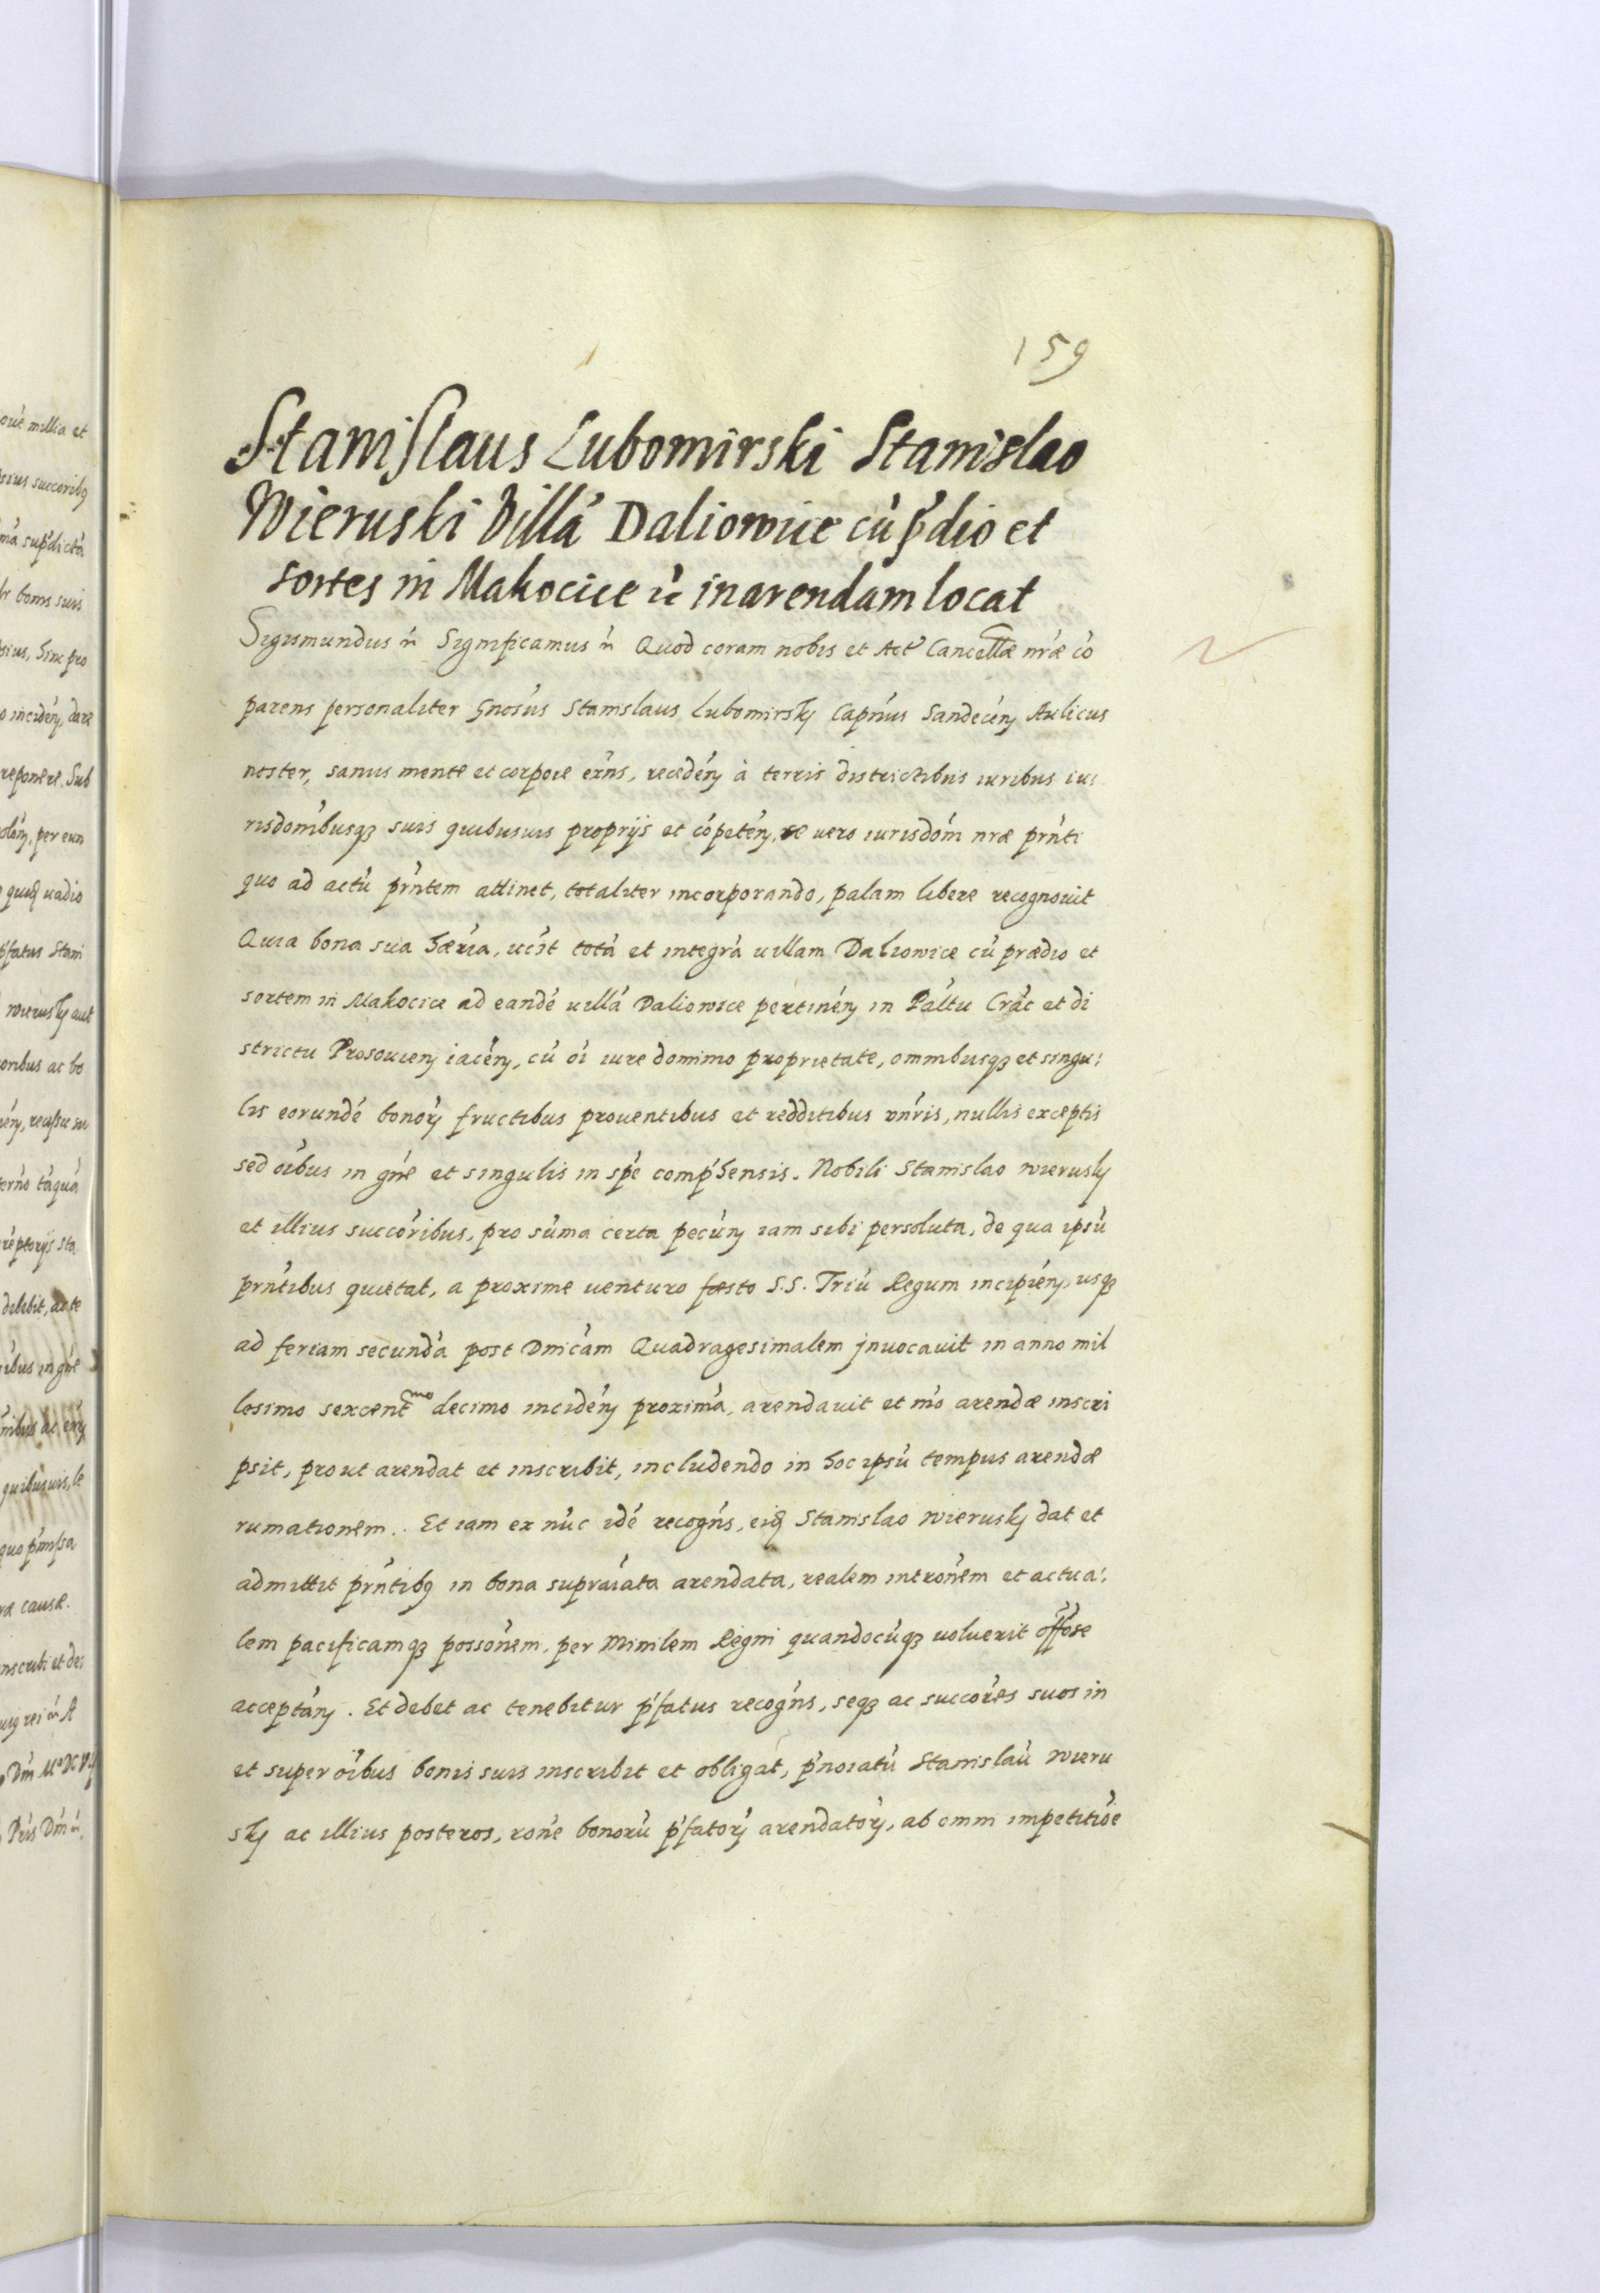 159
Stanislaus Lubomirski Stanislao
Wieruski Villá Daliowice cú p̓dio et
sortes in Makocice ŕc in arendam locat
Sigismundus ŕn Significamus ŕn Quod coram nobis et Act' Cancellæ nr̓æ có
parens personaliter Gnosús Stanislaus Lubomirsky Capnús Sandecén̄ Aulicus
noster, sanus mente et corpore exńs, recedén̄ à terris districtibus iuribus iu
risdonîbusqꝫ suis quibusuis proprijs et cópetén̄, se uero iurisdóni nræ prńti
quo ad actú prńtem attinet, totaliter incorporando, palam libere recognouit
Quia bona sua hæŕia, ucít totá et integrá uillam Daliowice cú prædio et
sortem in Makocice ad eandé uillá Daliowice pertinén̄ in Páltu Crác et di
strictu Prosouien̄ iacén̄, cú oí iure dominio proprietate, omnibusqꝫ et singu:
lis eorundé bonoŕ fructibus prouentibus et redditibus vńris, nullis exceptis
sed oíbus in gńe et singulis in spé comp̓hensis. Nobili Stanislao Wierusky
et illius succóribus, pro súma certa pecún̄ iam sibi persoluta, de qua ipsú
prńtibus quietat, a proxime uenturo fæsto S.S. Triú Regum incipién̄, usqꝫ
ad feriam secundá post Dnićam Quadragesimalem jnuocauit in anno mil
lesimo sexcentmo decimo incidén̄ proximá, arendauit et mó arendæ inscri
psit, prout arendat et inscribit, includendo in hoc ipsú tempus arendæ
rumationem. Et iam ex núc idé recogńs, eiꝗ Stanislao Wierusky dat et
admittit prńtibꝫ in bona supraíata arendata, realem introném et actua:
lem pacificamqꝫ possoném, per Minilem Regni quandocúqꝫ uoluerit offóse
acceptán̄. Et debet ac tenebitur p̓fatus recogńs, seqꝫ ac succóres suos in
et super oíbus bonis suis inscribit et obligat, p̓noiatú Stanislaú Wieru
sky ac illius posteros, roné bonorú p̓fatoŕ arendatoŕ, ab omni impetitióe